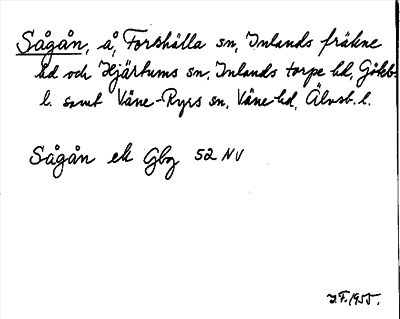 Sågån, å, Forshälla sn, Inlands fräkne
hd och Hjärtums sn, Inlands torpe hd, Götebs.
l. samt Väne-Ryrs sn, Väne hd, Älvsb. l.
Sågån ek Gbg 52 NV
J.F. 1955.